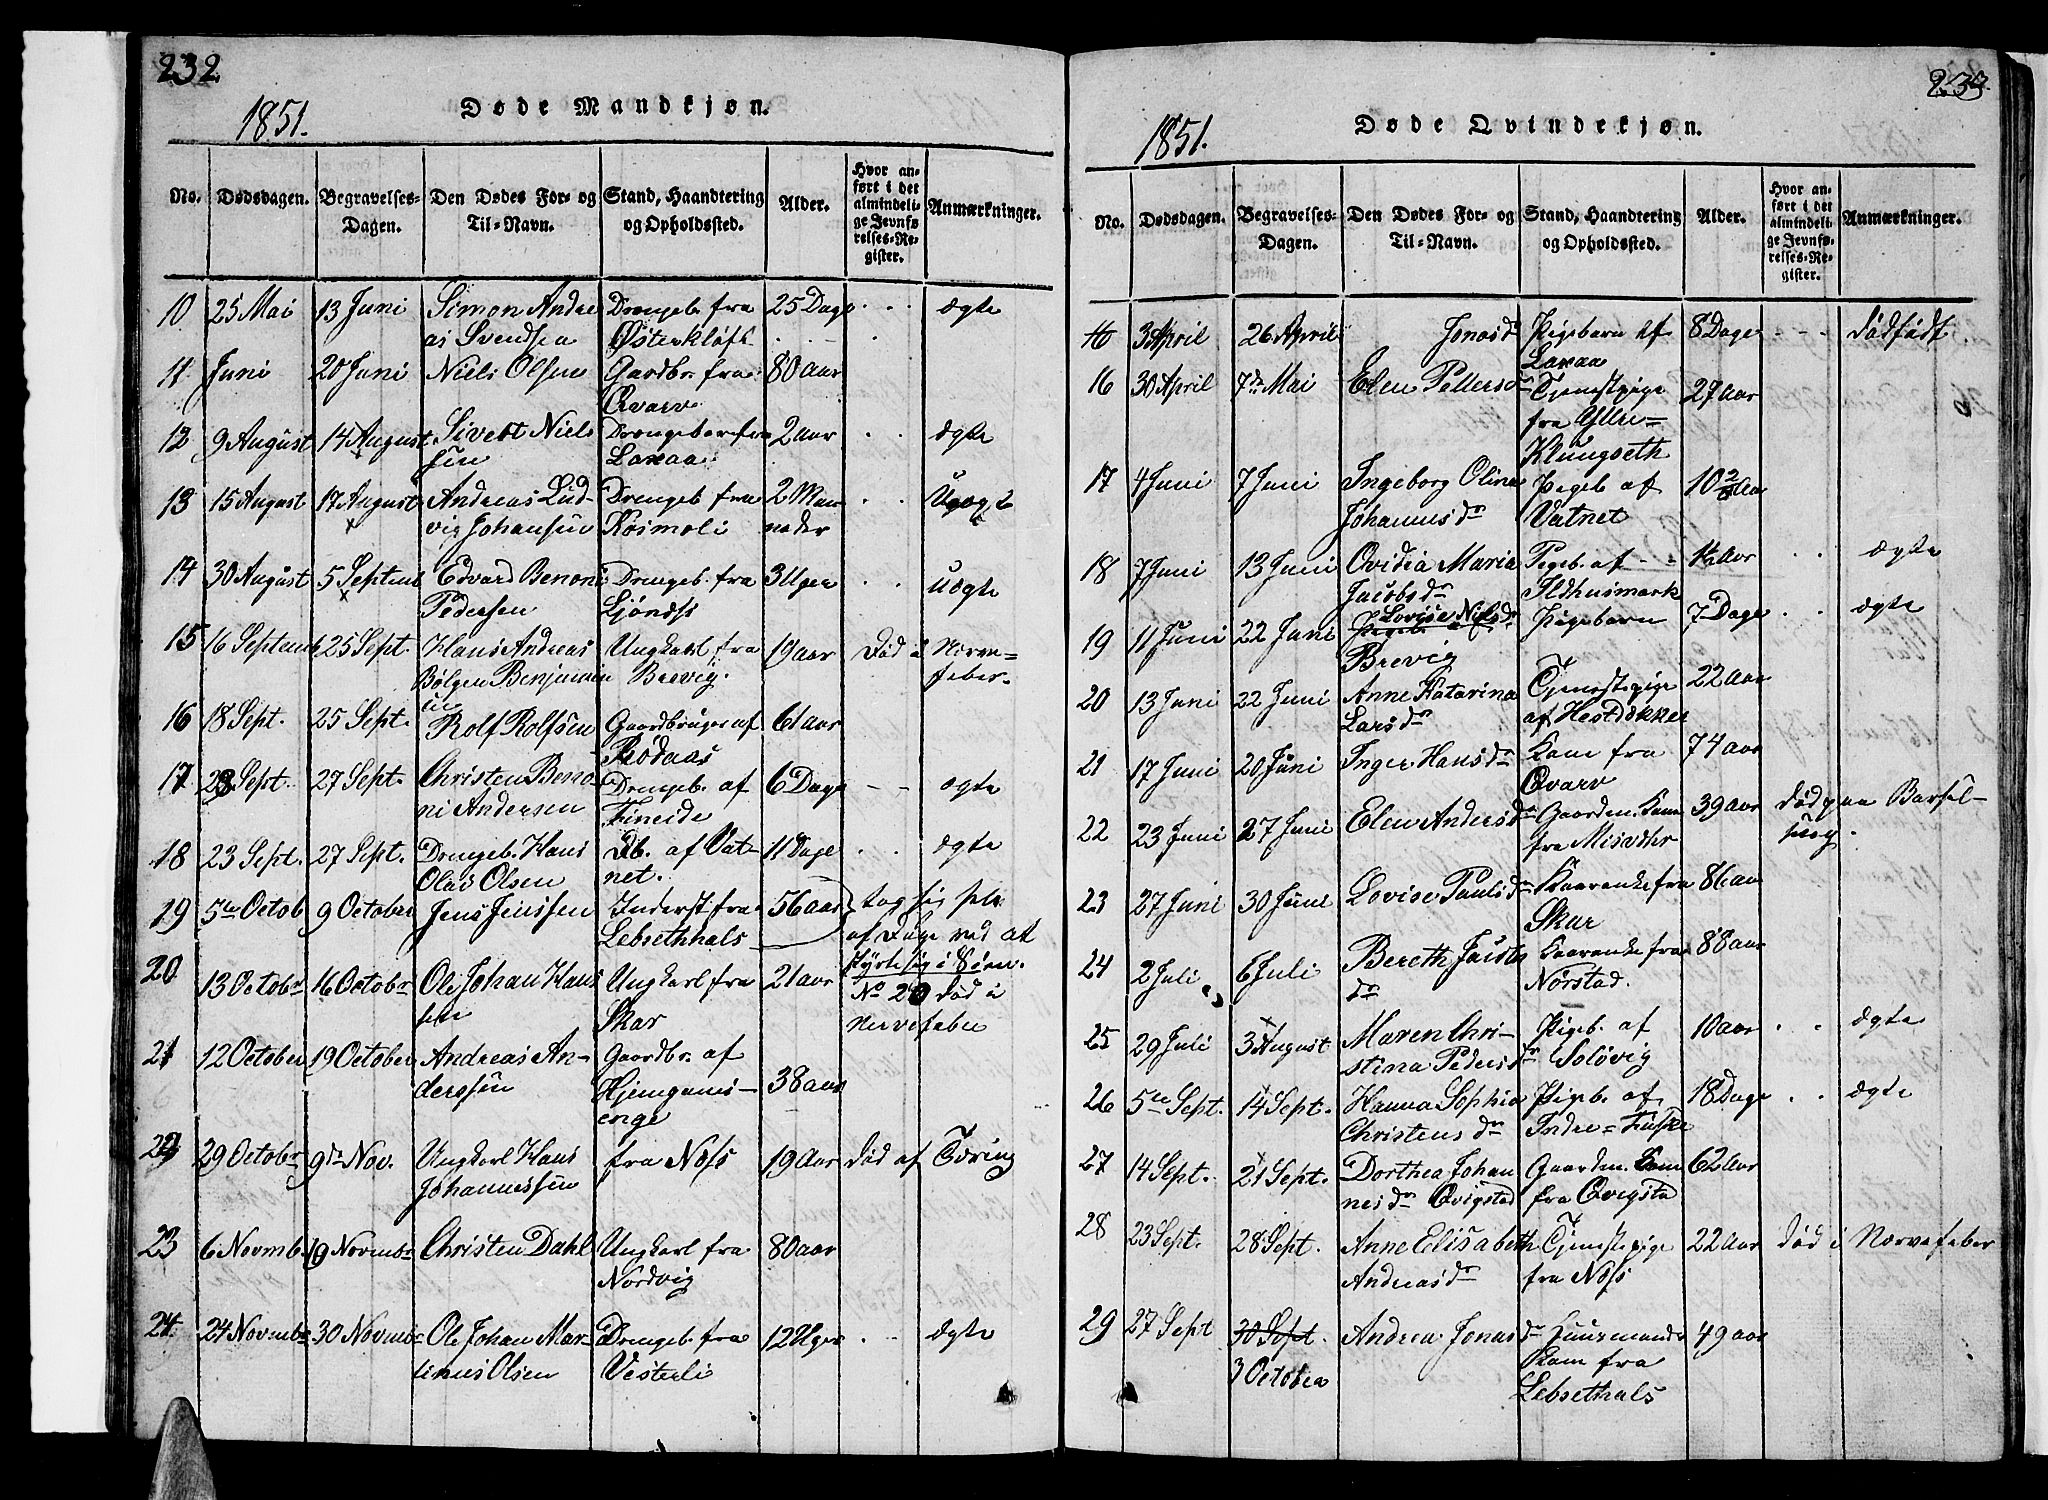 232.
1851.
Døde Mandkjøn.
No. Dødsdagen. Begravelses-Dagen. Den Dødes For- og Til-Navn. Stand, Haandtering og Opholdssted. Alder. Hvor anført i det almindelige Jevnførelses-Register. Anmærkninger.
10 25 Mai 13 Juni Simon Andre Drengeb. fra 25 Dage . . ægte
as Svendsen Østerkløft
11 Juni 20 Juni Niels Olsen Gardbr. fra 80 aar
Qvarv
12 9 August 14 August Sivert Niel Drengebarn fra 2 aar . . ægte
sen Laxaa
13 15 August 17 August Andreas Lud- Drengeb. fra 2 Maa . . Uægte
vig Johansen Kosmoli neder
14 30 August 5 Septemb Edvard Benoni Drengeb. fra 3 Uger . . uægte
Pedersen Ljønæs
15 16 Septemb 25 Sept. Hans Andreas Ungkarl fra 19 aar Død i Nerve=
Bølgen Benjamin Brevig. feber.
16 18 Sept. 25 Sept. Rolf Rolfsen Gaardbruger af 61 aar
Rødaas
17 23 Sept. 27 Sept. Christen Beno- Drengeb. af 6 Dage - - ægte
ni Andersen Fineide
18 23 Sept. 27 Sept. Drengeb. Hans Db. af Vat- 11 Dage . . ægte
Olai Olsen net.
19 5te Octob 9 October Jens Jenssen Inderst fra 56 aar tog sig selv
Lebsethhals af Dage ved at
styrte sig i Søen.
20 13 Octobr 16 Octobr Ole Johan Hans Ungkarl fra 21 aar No 20 Død i
sen Skar Nervefeber
21 12 October 19 October Andreas An- Gaardbr. af 38 aar
derssen Hjemgams-
enge
22 29 Octobr 9de Nov. Ungkarl Hans fra Næss 19 Aar Død af Tæring
Johannessen
23 6 Novemb. 19 Novembr Christen Dahl Ungkarl fra 80 aar
Nordvig
24 24 Novembr 30 Novembr Ole Johan Mar- Drengeb. fra 12 Uger . . ægte
tinus Olsen Vesterli
233.
1851.
Døde Qvindekjøn.
No. Dødsdagen. Begravelses-Dagen. Den Dødes For- og Til-Navn. Stand, Haandtering og Opholdssted. Alder. Hvor anført i det almindelige Jevnførelses-Register. Anmærkninger.
3 April 26 April Jonasdr Pigebarn af 8 Dage - - - dødfødt.
Laxaa
16 30 April 7de Mai Elen Pettersdr Tjenestpige 27 aar
fra Yttre=
Klungseth
17 4 Juni 7 Juni Ingeborg Olina Pigeb. af
Johannesdr Vatnet
18 7 Juni 13 Juni Ovidia Maria Pigeb. af 1½ Aar . . ægte
Jacobsdr Ildhusmark
19 11 Juni 22 Juni Lovise Nielsdr Pigebarn 7 Dage . . ægte
Brevig
20 13 Juni 22 Juni Anne Katarina Tjenestepige 22 aar
Larsdr af Hestdokker
21 17 Juni 20 Juni Inger Hansdr Kone fra 74 aar
Qvarv
22 23 Juni 27 Juni Elen Andersdr Gaardm. Kone 39 aar død paa Barsel-
fra Misvær seng.
23 27 Juni 30 Juni Lovise Paulsdr Kaarenke fra 86 aar
Skar
24 2 Juli 6 Juli Bereth Kaarenke fra 88 aar
dr Nørstad.
25 29 Juli 3 August Maren Chri- Pigeb. af 10 aar . . ægte
stina Pedersdr Soløvig
26 5te Sept. 14 Sept. Hanna Sophia Pigeb. af 18 Dage . . ægte
Christensdr Indre=Fuske
27 14 Sept. 21 Sept. Dorthea Johan Gaardm. Kone 62 aar
nesdr Qvigstad fra Qvigsta
28 23 Sept. 28 Sept. Anne Elisabeth Tjenestepige 22 Aar død i Nervefeber
Andreasdr fra Næss
29 27 Sept 30 Sept. Andrea Jonasdr Huusmands 49 aar
3 October Kone fra
Lebsethals